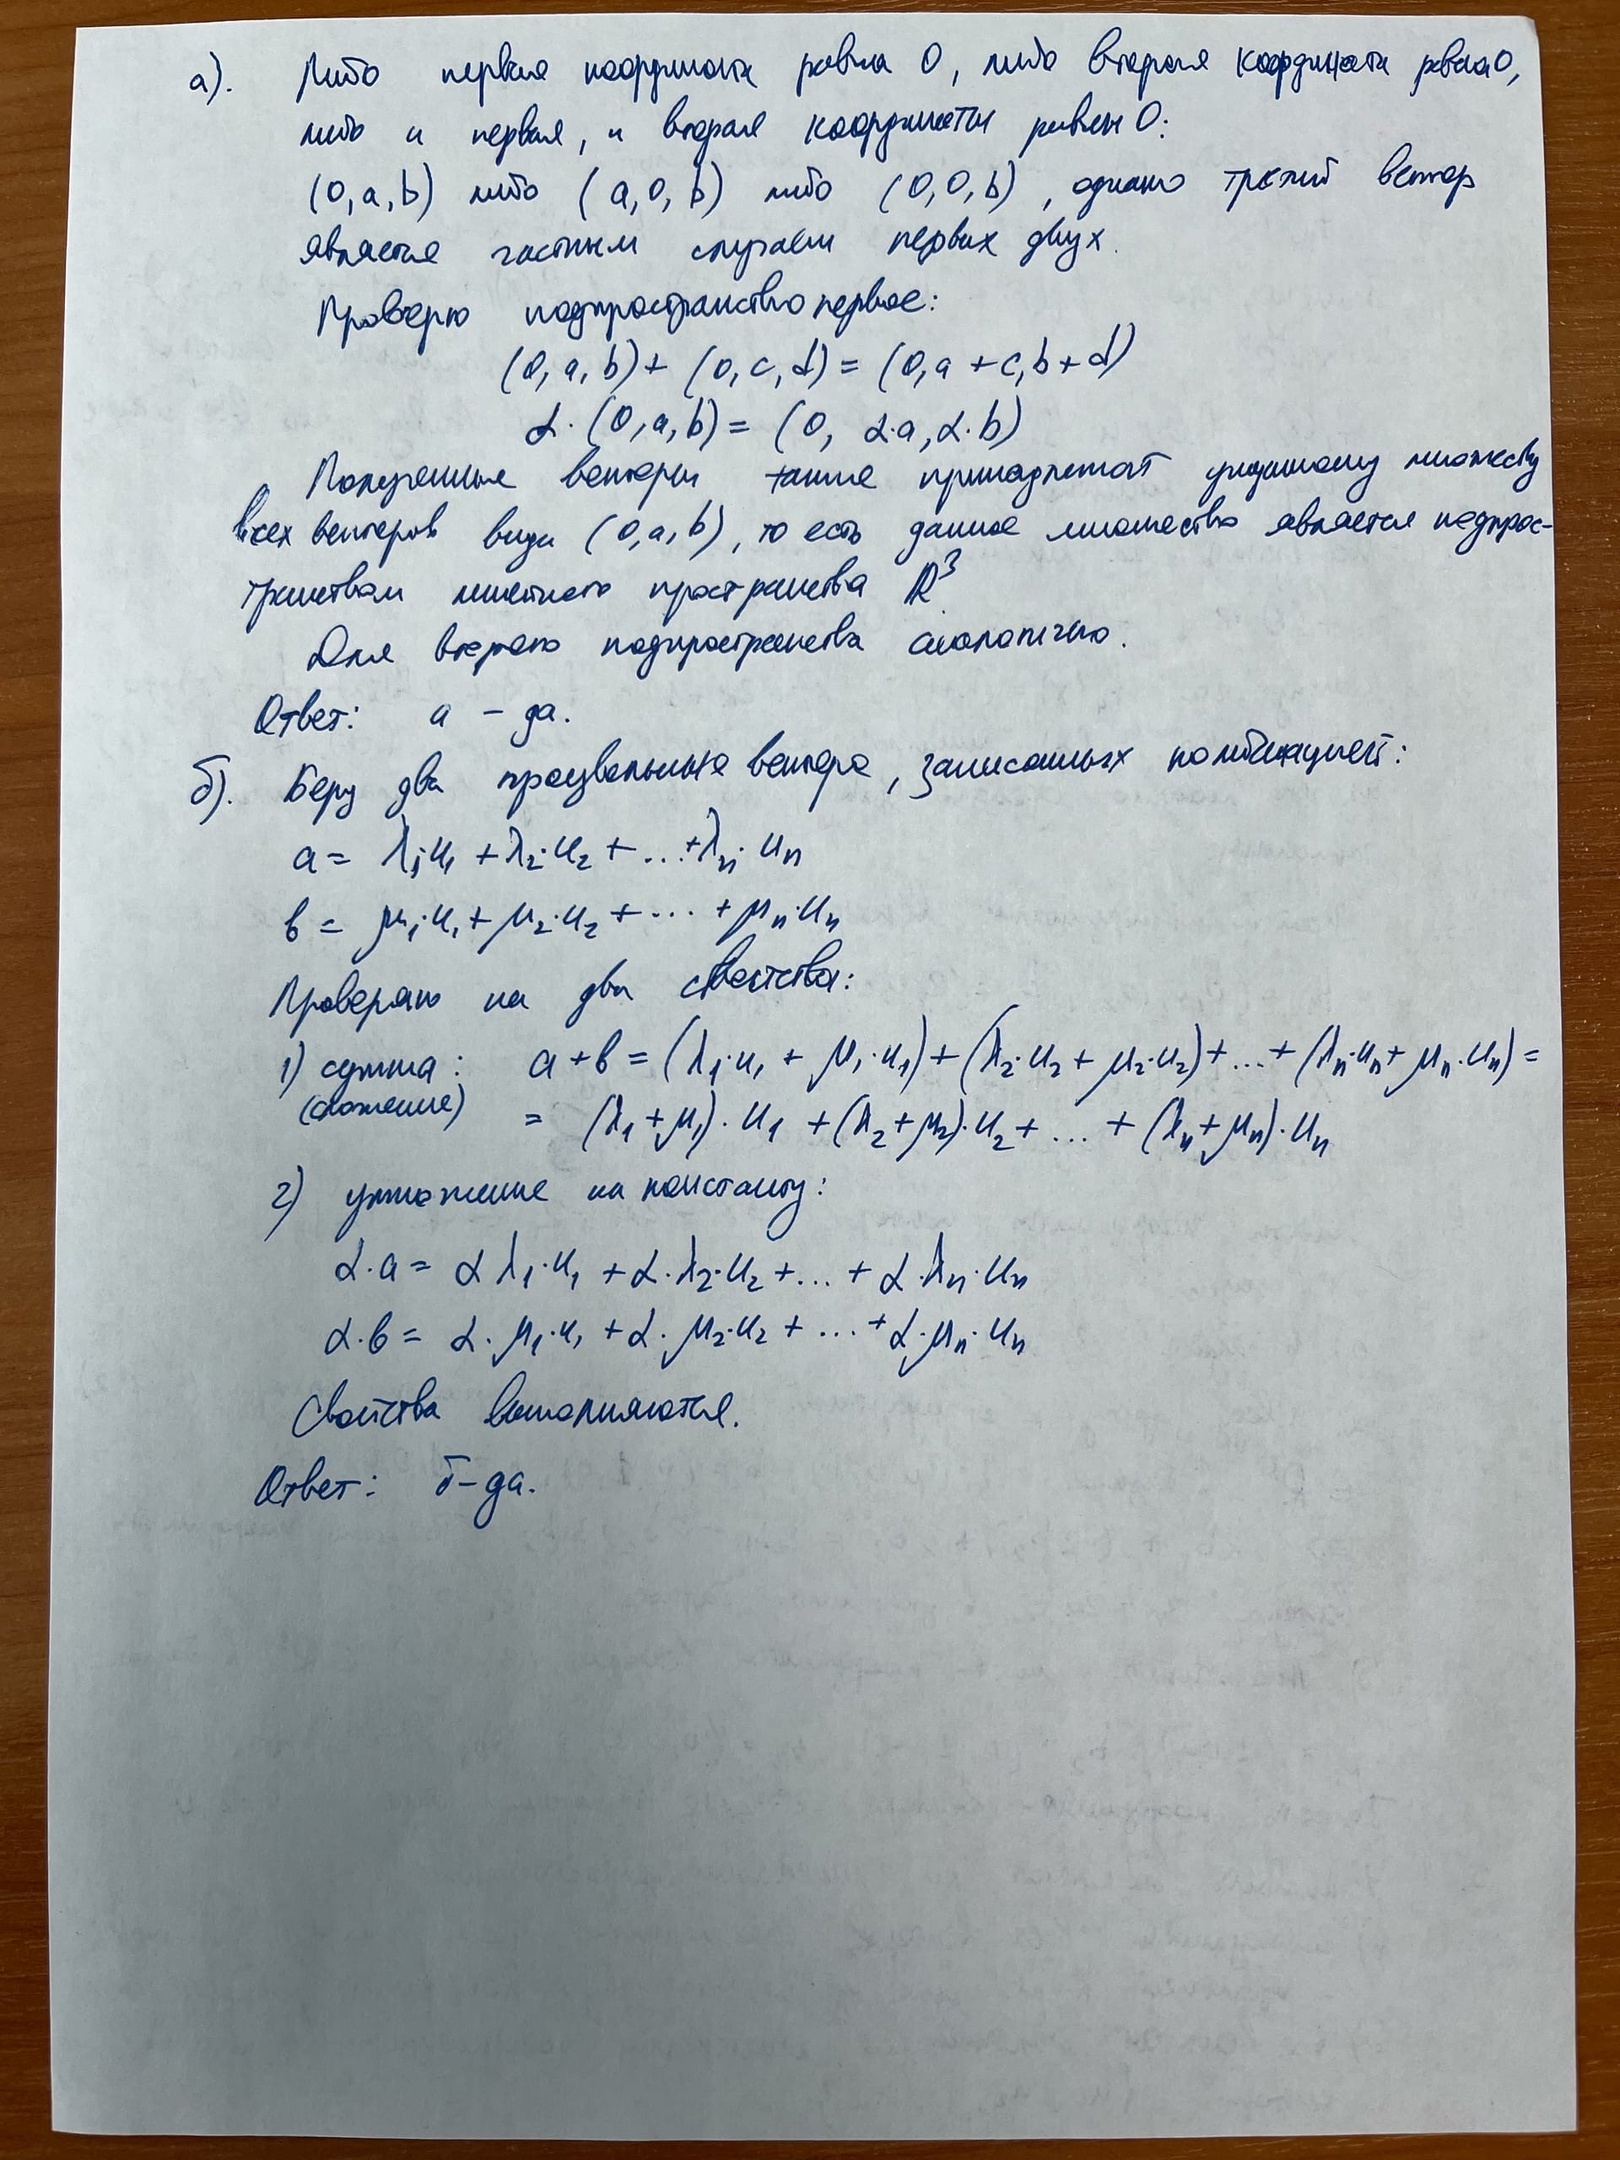 а). Либо первая координата равна 0, либо вторая координата равна 0,
либо и первая, и вторая координаты равны 0:
(0, a, b) либо (a, 0, b) либо (0, 0, b), однако третий вектор
является частным случаем первых двух.
Проверю подпространство первое:
(0, a, b) + (0, c, d) = (0, a + c, b + d)
α · (0, a, b) = (0, α·a, α·b)
Полученные векторы также принадлежат умножению множеству
всех векторов вида (0, a, b), то есть данное множество является подпрос-
транством линейного пространства ℝ³
Для второго подпространства аналогично.
Ответ: а – да.
б). Беру два произвольных вектора, записанных комбинацией:
a = λ₁·u₁ + λ₂·u₂ + ... + λₙ·uₙ
в = μ₁·u₁ + μ₂·u₂ + ... + μₙ·uₙ
Проверяю на два свойства:
1) сумма: a + в = (λ₁·u₁ + μ₁·u₁) + (λ₂·u₂ + μ₂·u₂) + ... + (λₙ·uₙ + μₙ·uₙ) =
(сложение) = (λ₁ + μ₁)·u₁ + (λ₂ + μ₂)·u₂ + ... + (λₙ + μₙ)·uₙ
2) умножение на константу:
α·a = α λ₁·u₁ + α·λ₂·u₂ + ... + α·λₙ·uₙ
α·в = α·μ₁·u₁ + α·μ₂·u₂ + ... + α·μₙ·uₙ
Свойства выполняются.
Ответ: б – да.